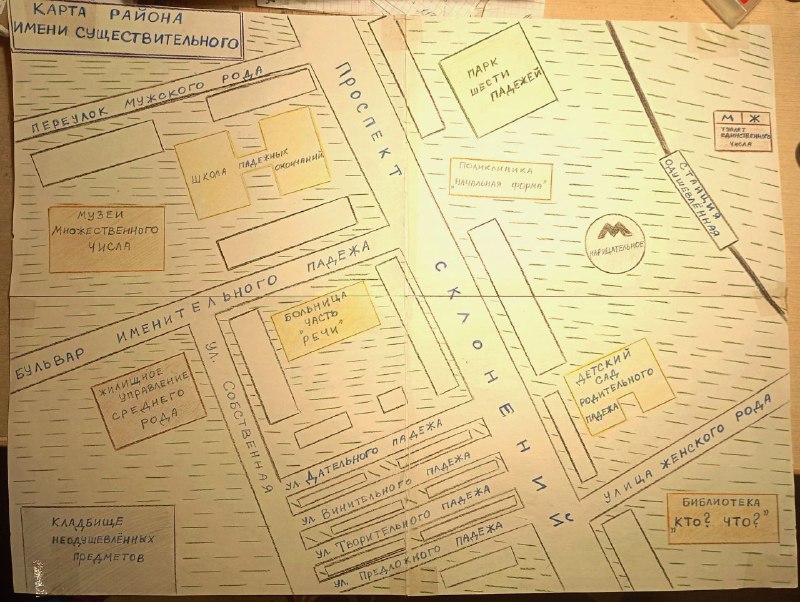 КАРТА РАЙОНА
ИМЕНИ СУЩЕСТВИТЕЛЬНОГО
ПЕРЕУЛОК МУЖСКОГО РОДА
ПРОСПЕКТ СКЛОНЕНИЙ
ПАРК
ШЕСТИ
ПАДЕЖЕЙ
М Ж
ТУАЛЕТ
ЕДИНСТВЕННОГО
ЧИСЛА
ШКОЛА ПАДЕЖНЫХ ОКОНЧАНИЙ
ПОЛИКЛИНИКА
"НАЧАЛЬНАЯ ФОРМА"
СТАНЦИЯ
ОДУШЕВЛЁННАЯ
МУЗЕЙ
МНОЖЕСТВЕННОГО
ЧИСЛА
М
НАРИЦАТЕЛЬНОЕ
БУЛЬВАР ИМЕНИТЕЛЬНОГО ПАДЕЖА
БОЛЬНИЦА
"ЧАСТЬ
РЕЧИ"
УЛ. СОБСТВЕННАЯ
ЖИЛИЩНОЕ
УПРАВЛЕНИЕ
СРЕДНЕГО
РОДА
ДЕТСКИЙ
САД
РОДИТЕЛЬНОГО
ПАДЕЖА
УЛ. ДАТЕЛЬНОГО ПАДЕЖА
УЛ. ВИНИТЕЛЬНОГО ПАДЕЖА
УЛ. ТВОРИТЕЛЬНОГО ПАДЕЖА
УЛ. ПРЕДЛОЖНОГО ПАДЕЖА
УЛИЦА ЖЕНСКОГО РОДА
БИБЛИОТЕКА
"КТО? ЧТО?"
КЛАДБИЩЕ
НЕОДУШЕВЛЁННЫХ
ПРЕДМЕТОВ